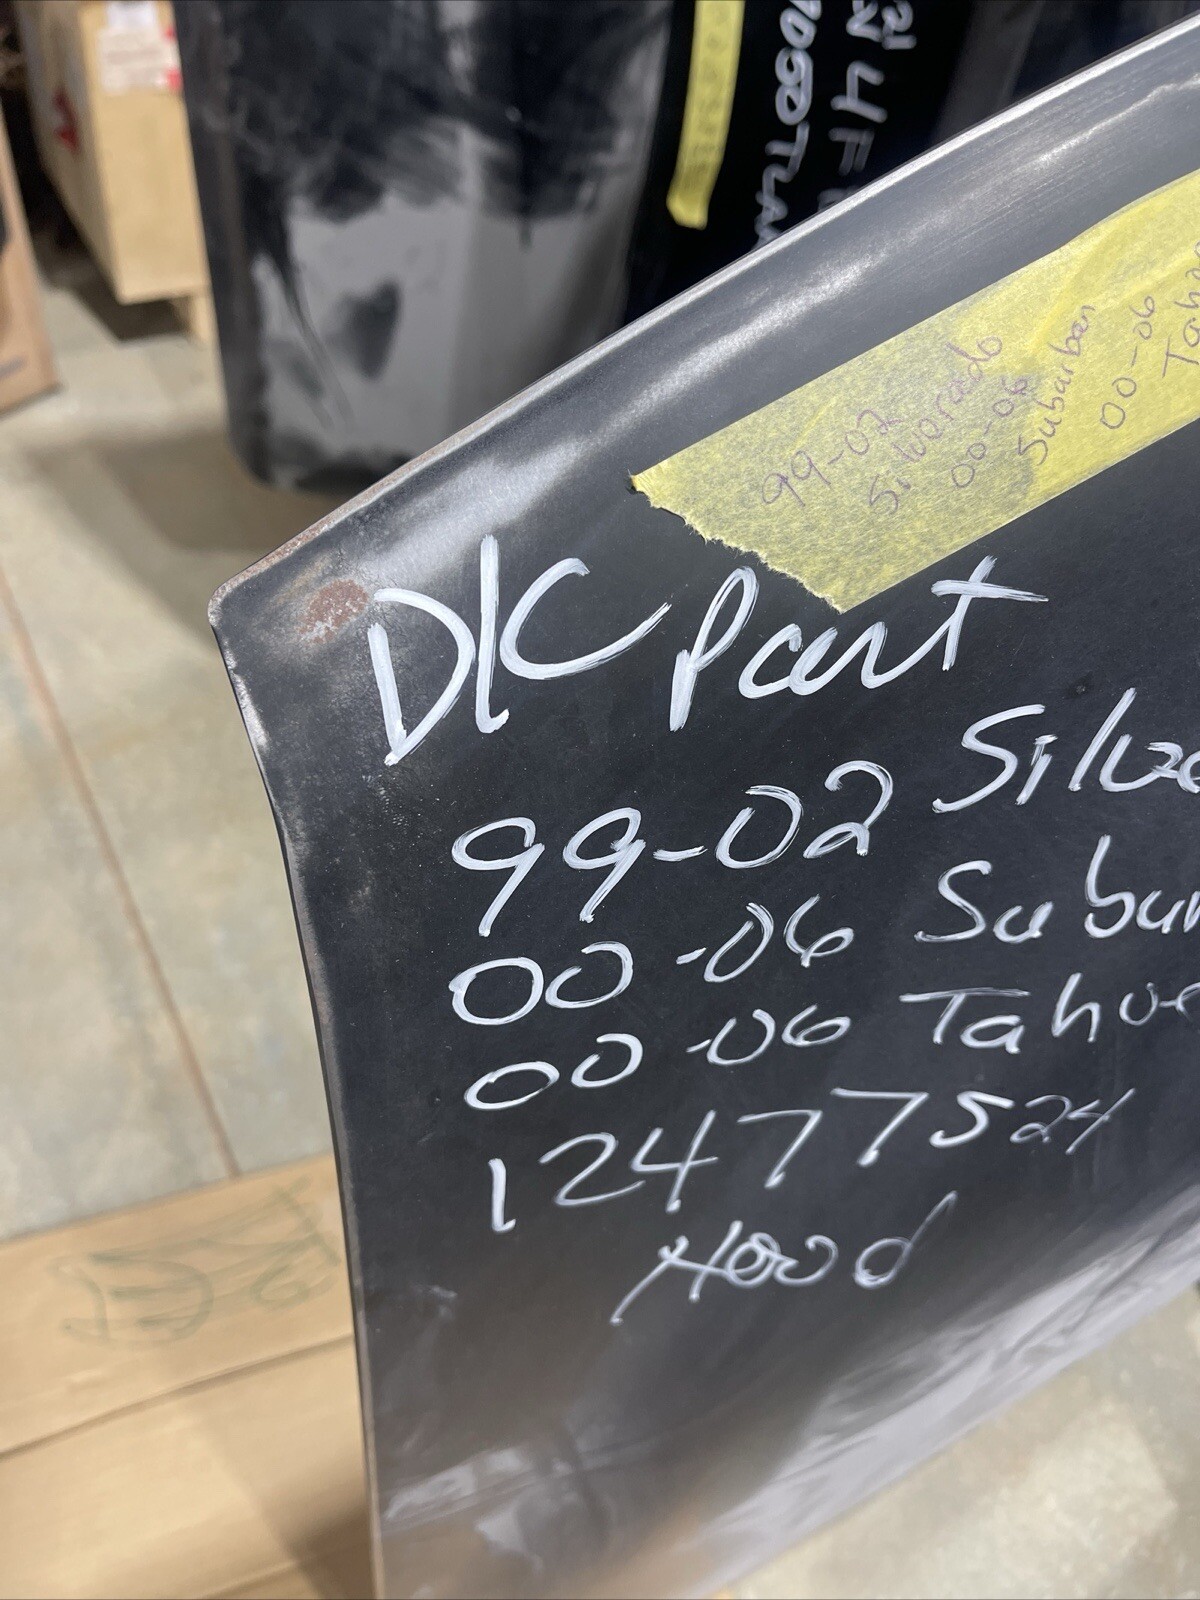 99-02
Silverado
00-06
Suburban
00-06
D/C Part
99-02 Silve
00-06 Subur
00-06 Tahoe
12477524
Hood